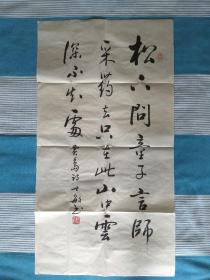 松下問童子言師
采药去只在此山中雲
深不知處 賈島詩